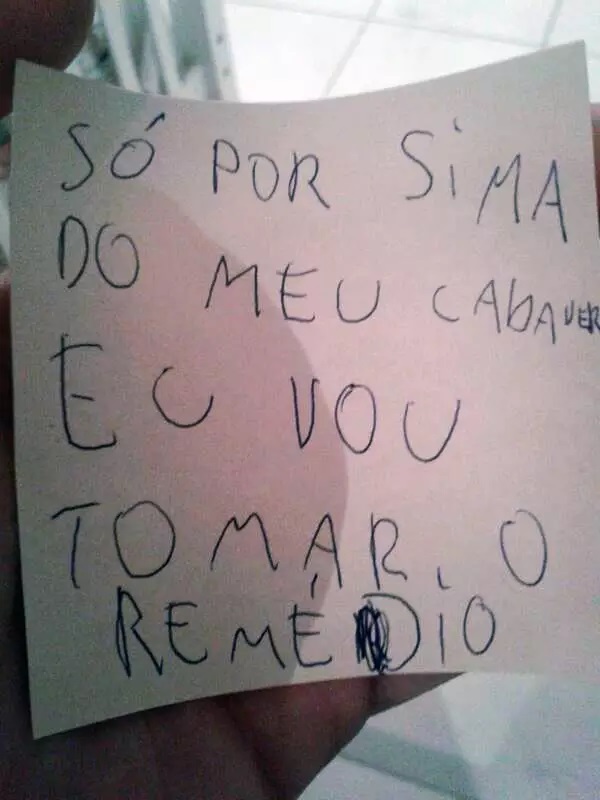 SÓ POR SiMA
DO MEU CADAVER
EU VOU
TOMAR. O
REMÉDiO